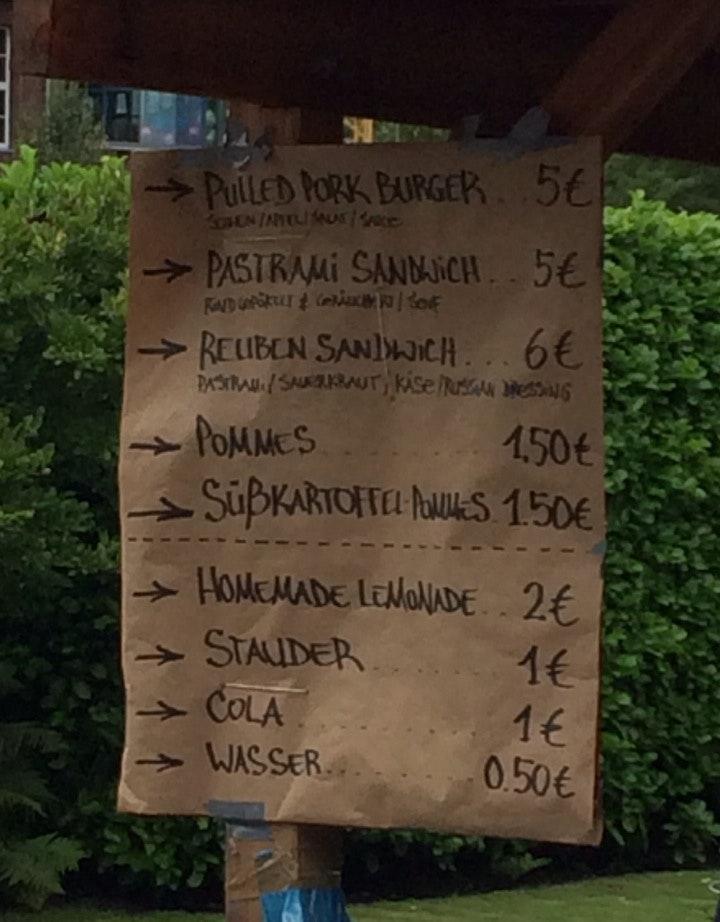 → PULLED PORK BURGER.. 5€
/APFEL/SALAT/SAUCE
→ PASTRAMi SANDWiCH.. 5€
RIND GEPÖKELT & GERÄUCHERT/SENF
→ REUBEN SANDWICH... 6€
PASTRAMI/SAUERKRAUT/KÄSE/RUSSIAN DRESSING
→ POMMES........ 1.50€
→ SÜßKARTOFFEL-POMMES 1.50€
→ HOMEMADE LEMONADE.. 2€
→ STAUDER........ 1€
→ COLA........ 1€
→ WASSER........ 0.50€